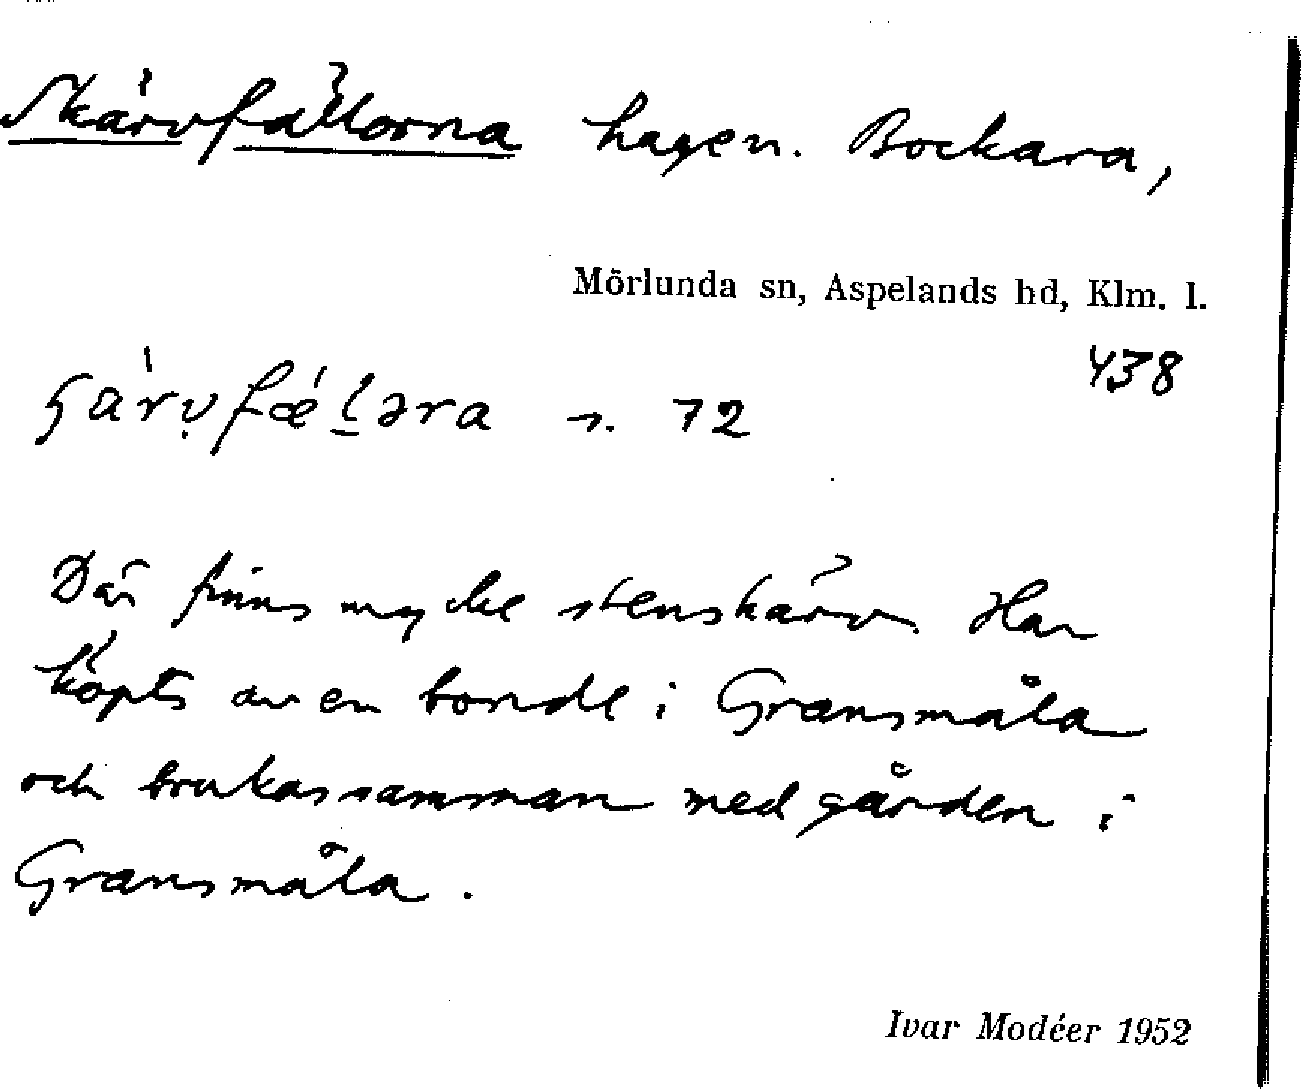 Skärvfällorna hagen. Bockara,
Mörlunda sn, Aspelands hd, Klm. l.
438
s. 72
Där finns mycke stenskärv. Har
köpts av en bonde i Gransmåla
och brukas samman med gården i
Gransmåla.
Ivar Modéer 1952